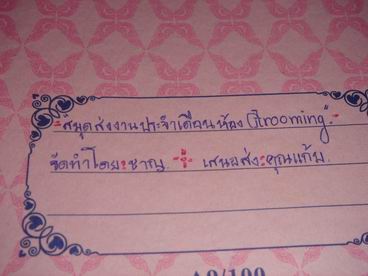 "สมุดส่งงานประจำเดือนห้อง Grooming"
จัดทำโดย: ชาญ เสนอส่ง: คุณแก้ม
A9/100